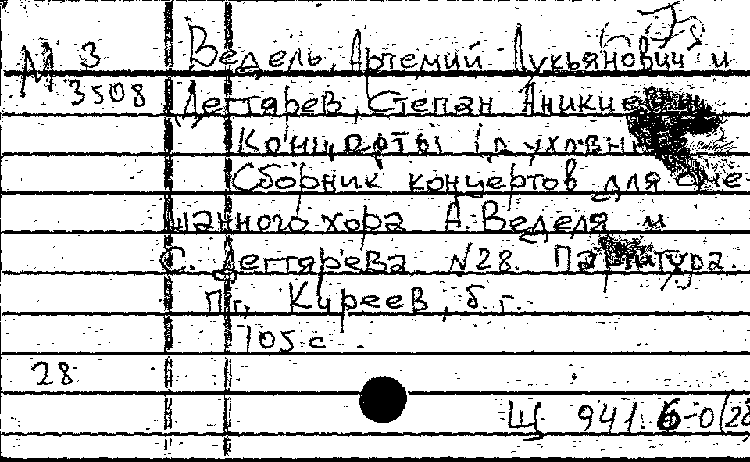 М 3
3508
Ведель, Артемий Лукьянович и
Дегтярев, Степан Аникиевич
Концерты духовные
Сборник концертов для сме-
шанного хора А. Веделя и
С. Дегтярева N28. Партитура.
Пг, Киреев, б. г.
105 с
28
Щ 941.6-0(28